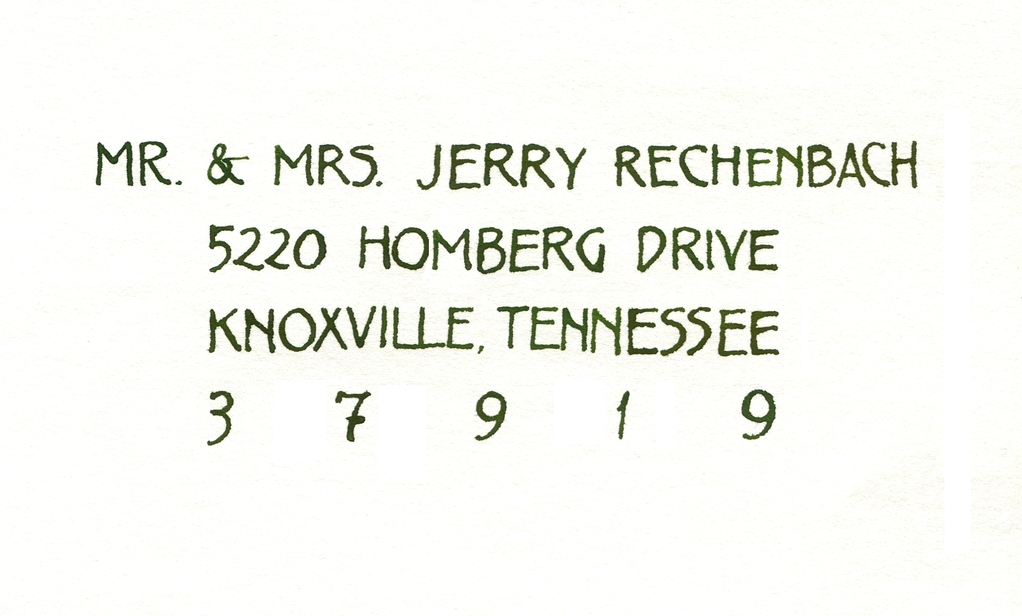 MR. & MRS. JERRY RECHENBACH
5220 HOMBERG DRIVE
KNOXVILLE, TENNESSEE
3 7 9 1 9